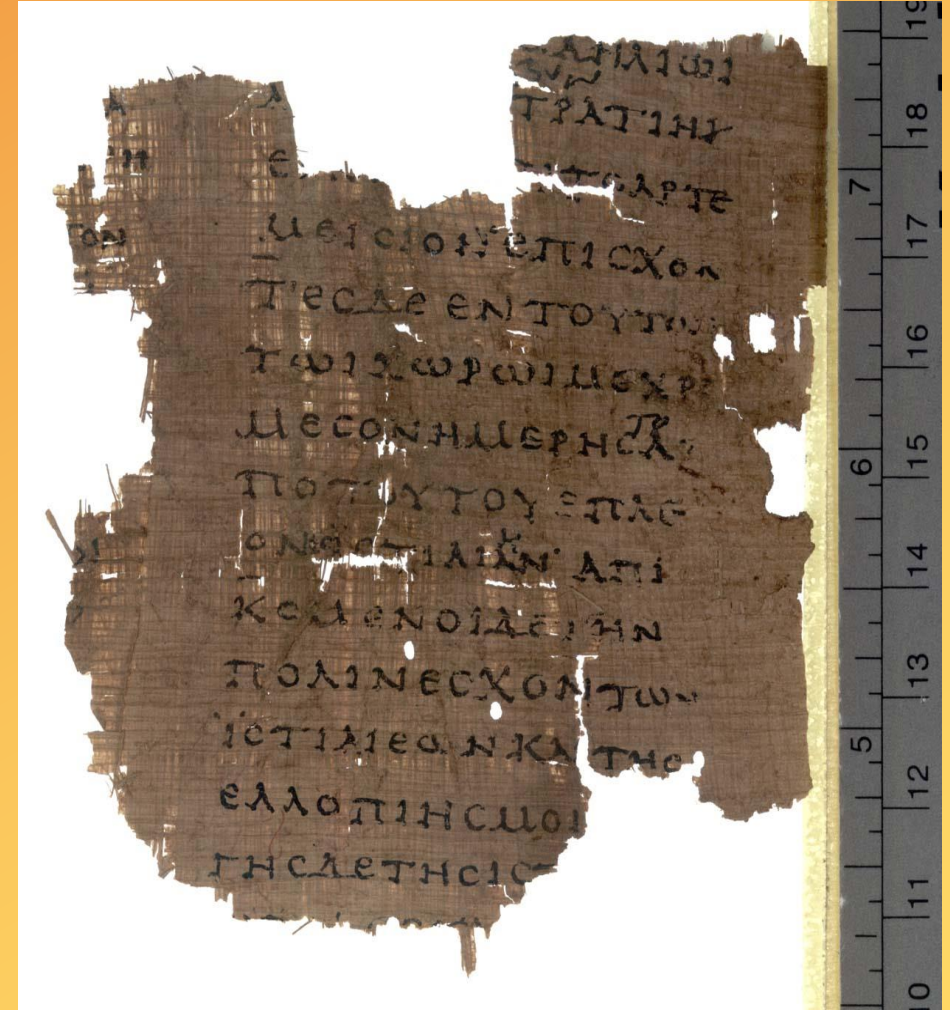 ΑΗΛΙΩΙ
ΤΡΑΤΙΗ
ΤΟΑΡΤΕ
ΜΕΙϹΙΟΝ ΕΠΙϹΧΟΝ
ΤΕϹΔΕ ΕΝ ΤΟΥΤΩ
ΤΩΙΧΩΡΩΙΜΕΧΡΙ
ΜΕϹΟΝΗΜΕΡΗϹΑ
ΠΟΤΟΥΤΟΥΕΠΛΕ
ΟΝ ΤΙΑΙΑΝ ΑΠΙ
ΚΟΜΕΝΟΙΔΕΤΗΝ
ΠΟΛΙΝΕϹΧΟΝΤΩΝ
ΪϹΤΙΑΙΕΩΝΚΑΙΤΗϹ
ΕΛΛΟΠΙΗϹΜΟΙ
ΓΗϹΔΕΤΗϹΙϹΤ
5 6 7
10 11 12 13 14 15 16 17 18 19